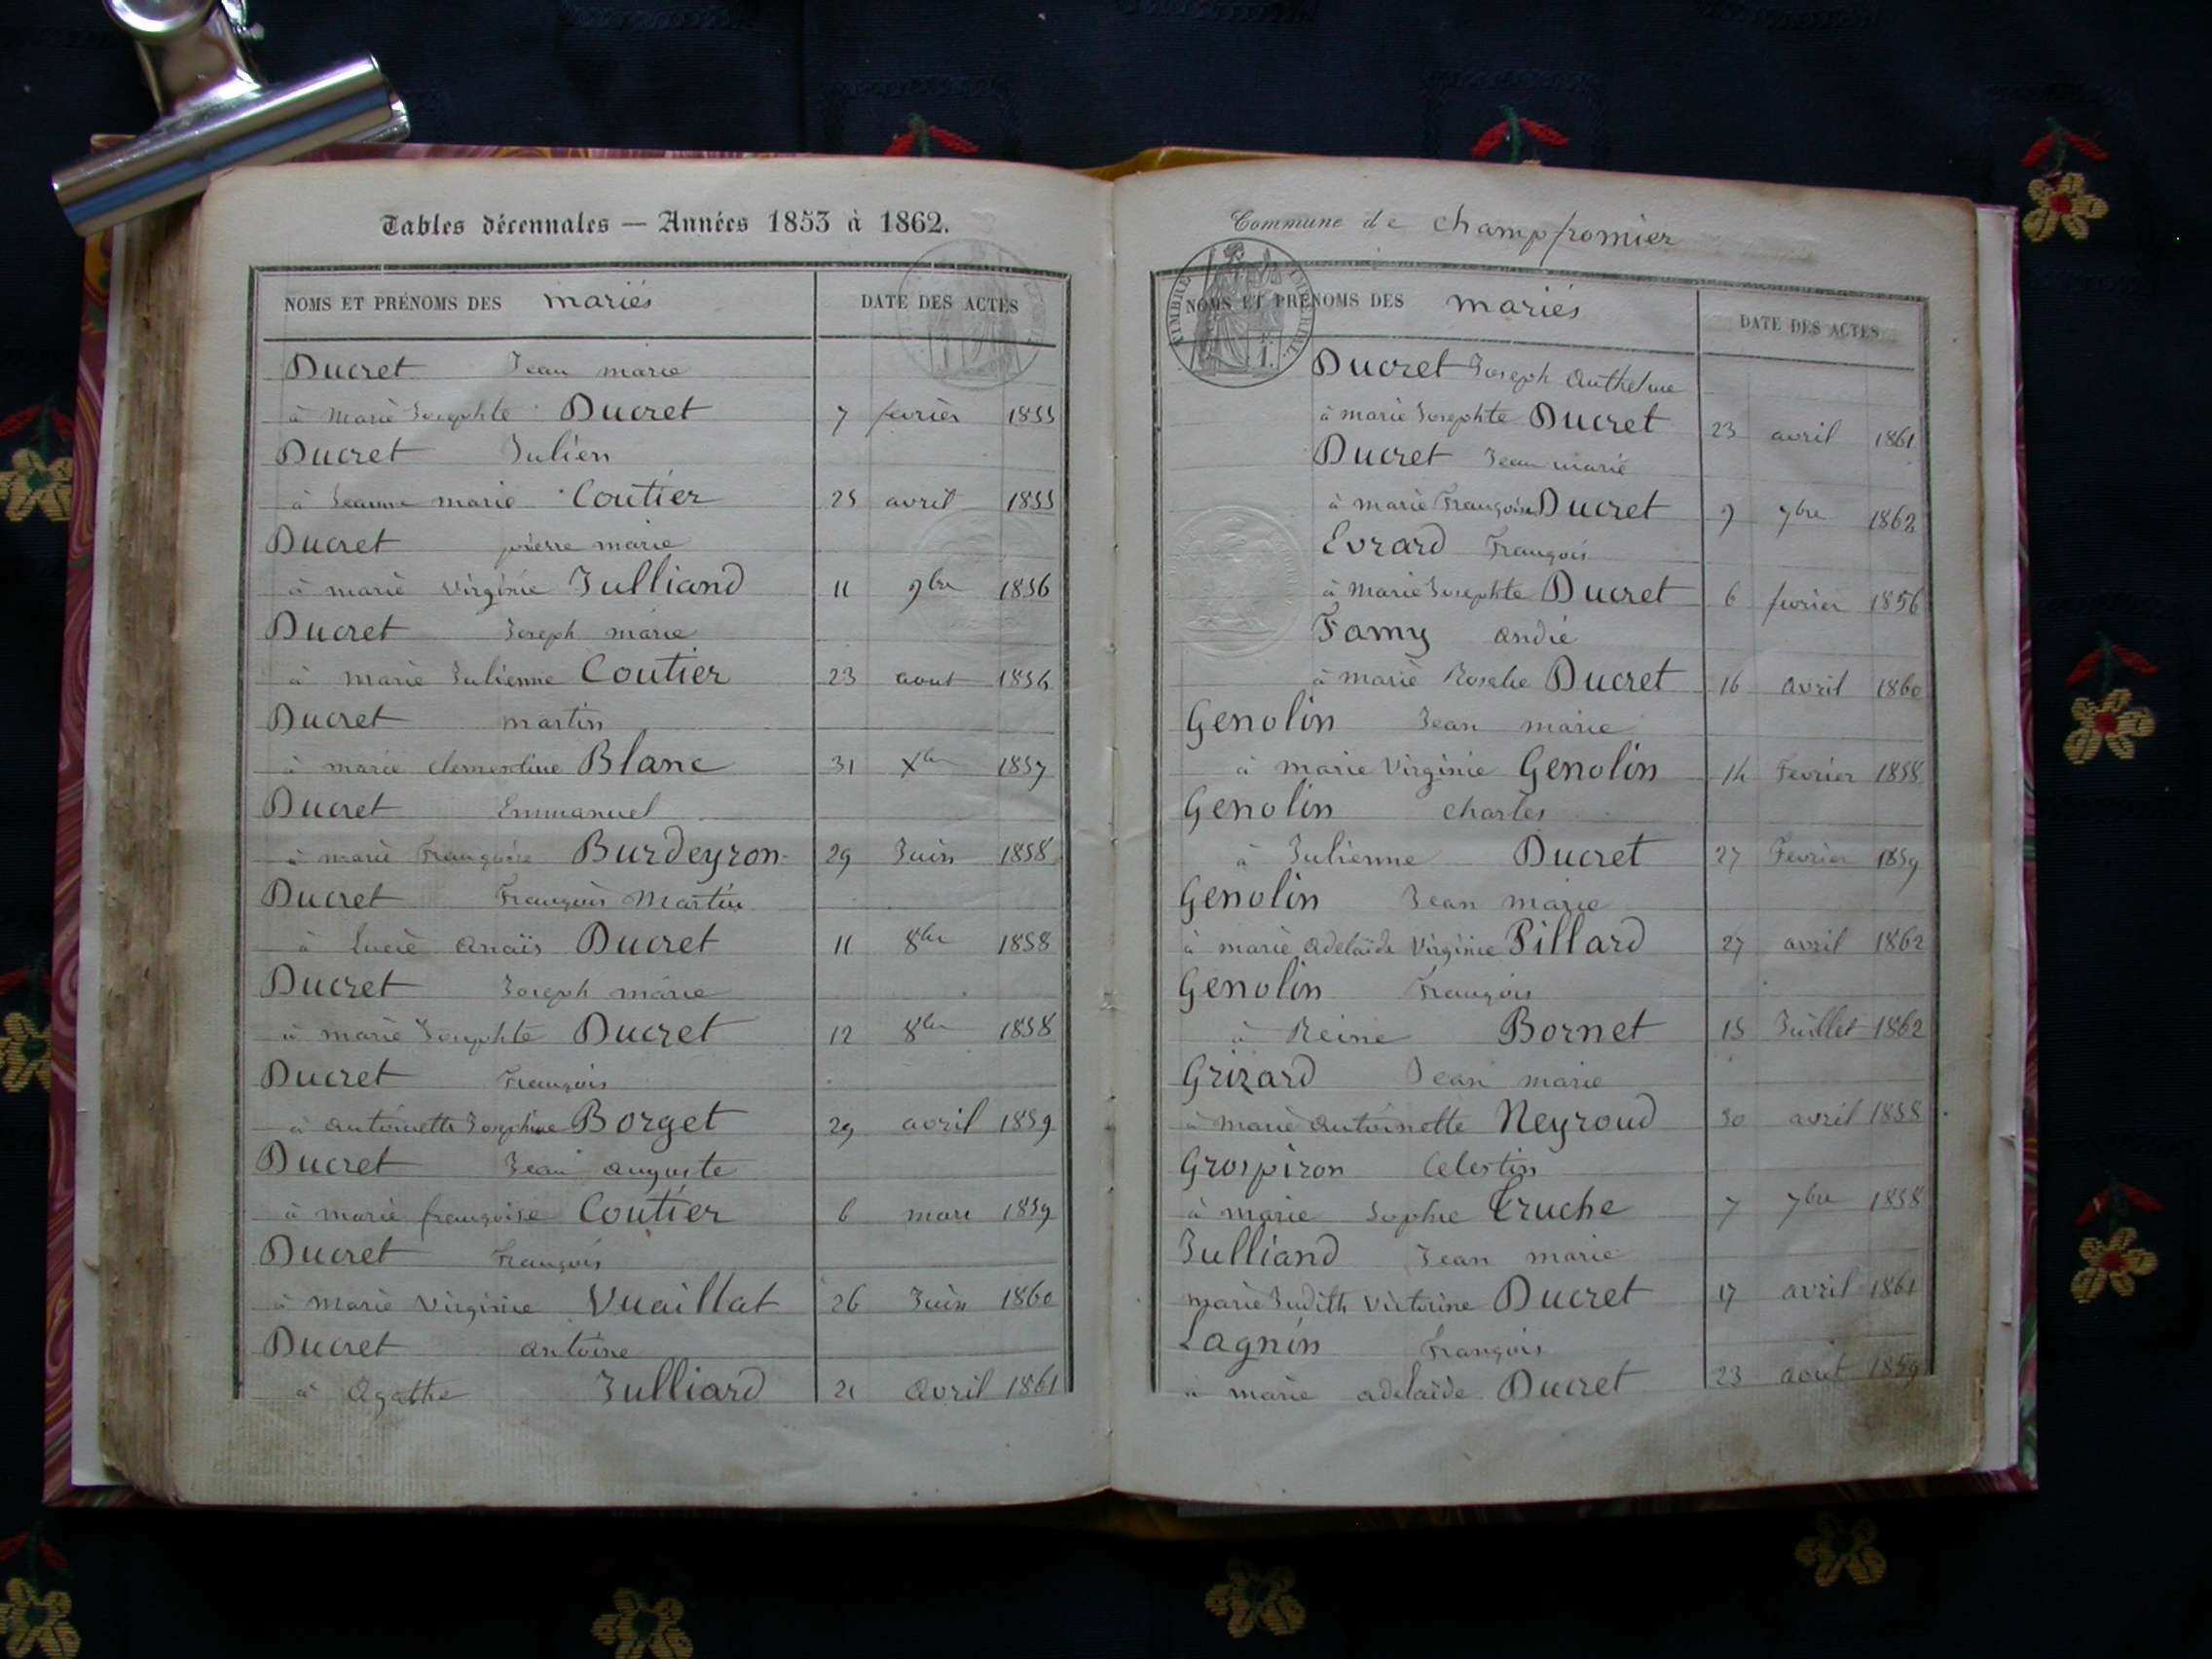 Tables décennales — Années 1853 à 1862.
NOMS ET PRÉNOMS DES mariés DATE DES ACTES
Ducret Jean marie
à marie Josephte Ducret 7 fevrier 1855
Ducret Julien
à Jeanne marie Coutier 25 avril 1855
Ducret pierre marie
à marie virginie Julliand 11 9bre 1856
Ducret Joseph marie
à marie Julienne Coutier 23 aout 1856
Ducret martin
à marie clementine Blanc 31 Xbre 1857
Ducret Emmanuel
à marie Françoise Burdeyron 29 Juin 1858
Ducret François Martin
à lucie anaïs Ducret 11 8bre 1858
Ducret Joseph marie
à marie Josephte Ducret 12 8bre 1858
Ducret François
à antoinette Josephine Borget 29 avril 1859
Ducret Jean auguste
à marie françoise Coutier 6 mars 1859
Ducret François
à marie virginie Vuaillat 26 Juin 1860
Ducret antoine
à Agathe Julliard 21 Avril 1861
Commune de champfromier
TIMBRE IMPERIAL
NOMS ET PRÉNOMS DES mariés DATE DES ACTES
Ducret Joseph Anthelme
à marie Josephte Ducret 23 avril 1861
Ducret Jean marie
à marie Françoise Ducret 7bre 1862
Evrard François
à marie Josephte Ducret 6 fevrier 1856
Famy andré
à marie Rosalie Ducret 16 avril 1860
Genolin Jean marie
à marie Virginie Genolin 14 Fevrier 1858
Genolin charles
à Julienne Ducret 27 Fevrier 1859
Genolin Jean marie
à marie adelaïde Virginie Pillard 27 avril 1862
Genolin François
à Reine Bornet 15 Juillet 1862
Grizard Jean marie
à marie antoinette Neyroud 30 avril 1858
Grospiron Celestin
à marie Sophie Truche 7 7bre 1858
Julliand Jean marie
marie Judith victorine Ducret 17 avril 1861
Lagnin François
à marie adelaïde Ducret 23 aout 1859